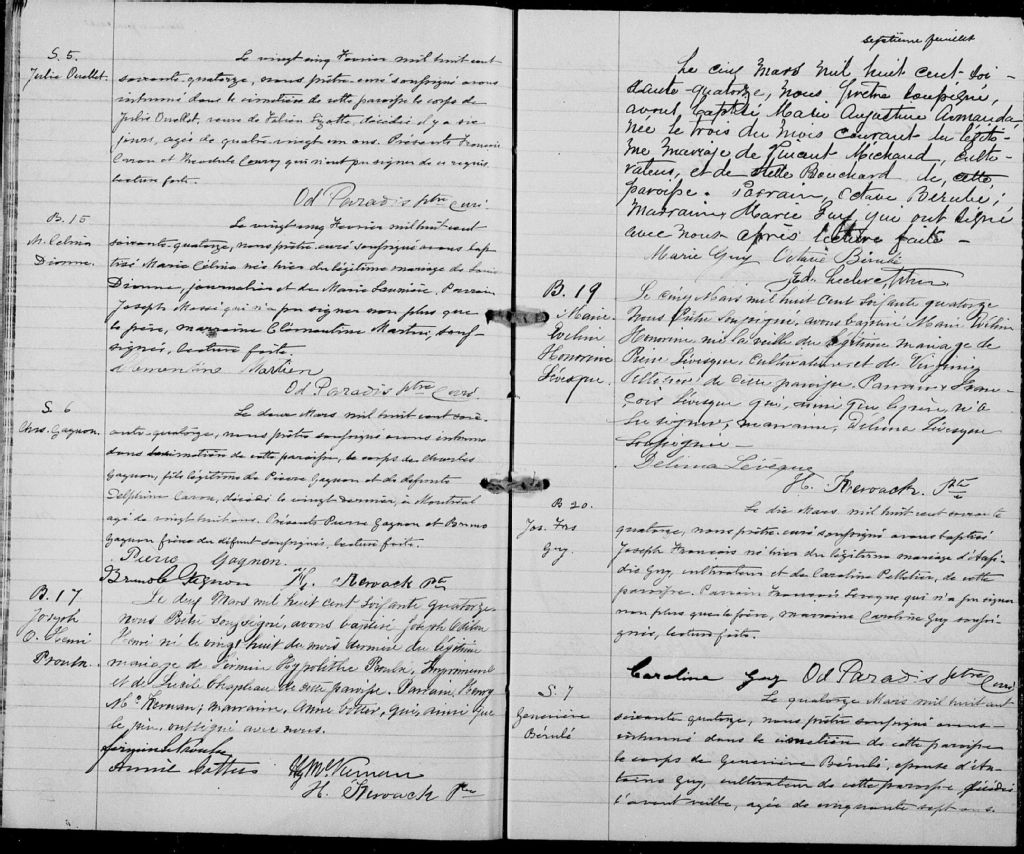 S. 5.
Julie Ouellet.
Le vingt cinq Fevrier mil huit cent
soixante-quatorze, nous prêtre curé soussigné avons
inhumé dans le cimetière de cette paroisse le corps de
Julie Ouellet, veuve de Fabien Lizotte, décédée il y a six
jours, agée de quatre-vingt un ans. Présents François
Caron et Theodule Couvry qui n'ont pu signer de ce requis
lecture faite.
Od Paradis ptre Curé.
B. 15
M. Célina
Dionne.
Le vingt cinq Fevrier mil huit cent
soixante-quatorze, nous prêtre curé soussigné avons bap-
tisé Marie Célina née hier du légitime mariage de Louis
Dionne, journalier et de Marie Saunière. Parrain
Joseph Massé qui n'a pu signer non plus que
le père, marraine Clementine Martin, sous-
signés, lecture faite.
Martien
Od Paradis ptre Curé
S. 6
Chrs. Gagnon.
Le deux Mars mil huit cent soix-
ante-quatorze, nous prêtre soussigné avons inhumé
dans le cimetière de cette paroisse, le corps de Charles
Gagnon, fils légitime de Pierre Gagnon et de défunte
Delphine Caron, décédé le vingt dernier, à Montréal
agé de vingt huit ans. Présents Pierre Gagnon et Bruno
Gagnon frère du défunt soussignés, lecture faite.
Pierre Gagnon.
Bruno Gagnon H. Kerouack Ptre
B. 17
Joseph
O. Henri
Proulx.
Le deux Mars mil huit cent soixante quatorze
nous Prêtre soussigné, avons baptisé Joseph Odilon
Henri né le vingt huit du mois dernier du légitime
mariage de Firmin Hypolithe Proulx, Imprimeur
et de Lucile Chapleau de cette paroisse. Parrain, Henry
Mc Kernan; marraine, Annie Cotter, qui, ainsi que
le père, ont signé avec nous.
Firmin H. Proulx
Annie Cotters Hy McKernan
H. Kerouack Ptre
septième feuillet
Le cinq Mars mil huit cent-soi-
xante-quatorze, nous Prêtre soussigné,
avons baptisé Marie Augustine Armanda
née le trois du mois courant du légiti-
me mariage de Vincent Michaud, culti-
vateur, et de Stelle Bouchard de, cette
paroisse. Parrain, Octave Bérubé;
Marraine Marie Guy que ont signé
avec nous après lecture faite -
Marie Guy Octave Bérubé
Ed. Leclerc Ptre
B. 19
Marie
Evelina
Honorine
Lévesque.
Le cinq Mars mil huit cent soixante quatorze
Nous Prêtre soussigné, avons baptisé Marie Evelina
Honorine née la veille du légitime mariage de
Pierre Lévesque, Cultivateur et de Virginie
Pelletier de cette paroisse. Parrain Fran-
çois Lévesque qui, ainsi que le père, n'a
su signer, marraine, Délima Lévesque
soussignée -
Delima Lévêque
H. Kerouack. Ptre
B 20.
Jos. Frs
Guy.
Le dix Mars mil huit cent soixante
quatorze, nous prêtre curé soussigné avons baptisé
Joseph François né hier du légitime mariage
Guy, cultivateur et de Caroline Pelletier, de cette
paroisse. Parrain François Lavoye qui n'a pu signer
non plus que le père, marraine Caroline Guy soussi-
gnée, lecture faite.
Caroline Guy Od Paradis ptre Curé
S. 7
Genevieve
Bérubé
Le quatorze Mars mil huit cent
soixante quatorze, nous prêtre soussigné avons
inhumé dans le cimetière de cette paroisse
le corps de Genevieve Bérubé, épouse d'An-
toine Guy, cultivateur de cette paroisse décédée
l'avant veille, agée de cinquante sept ans.